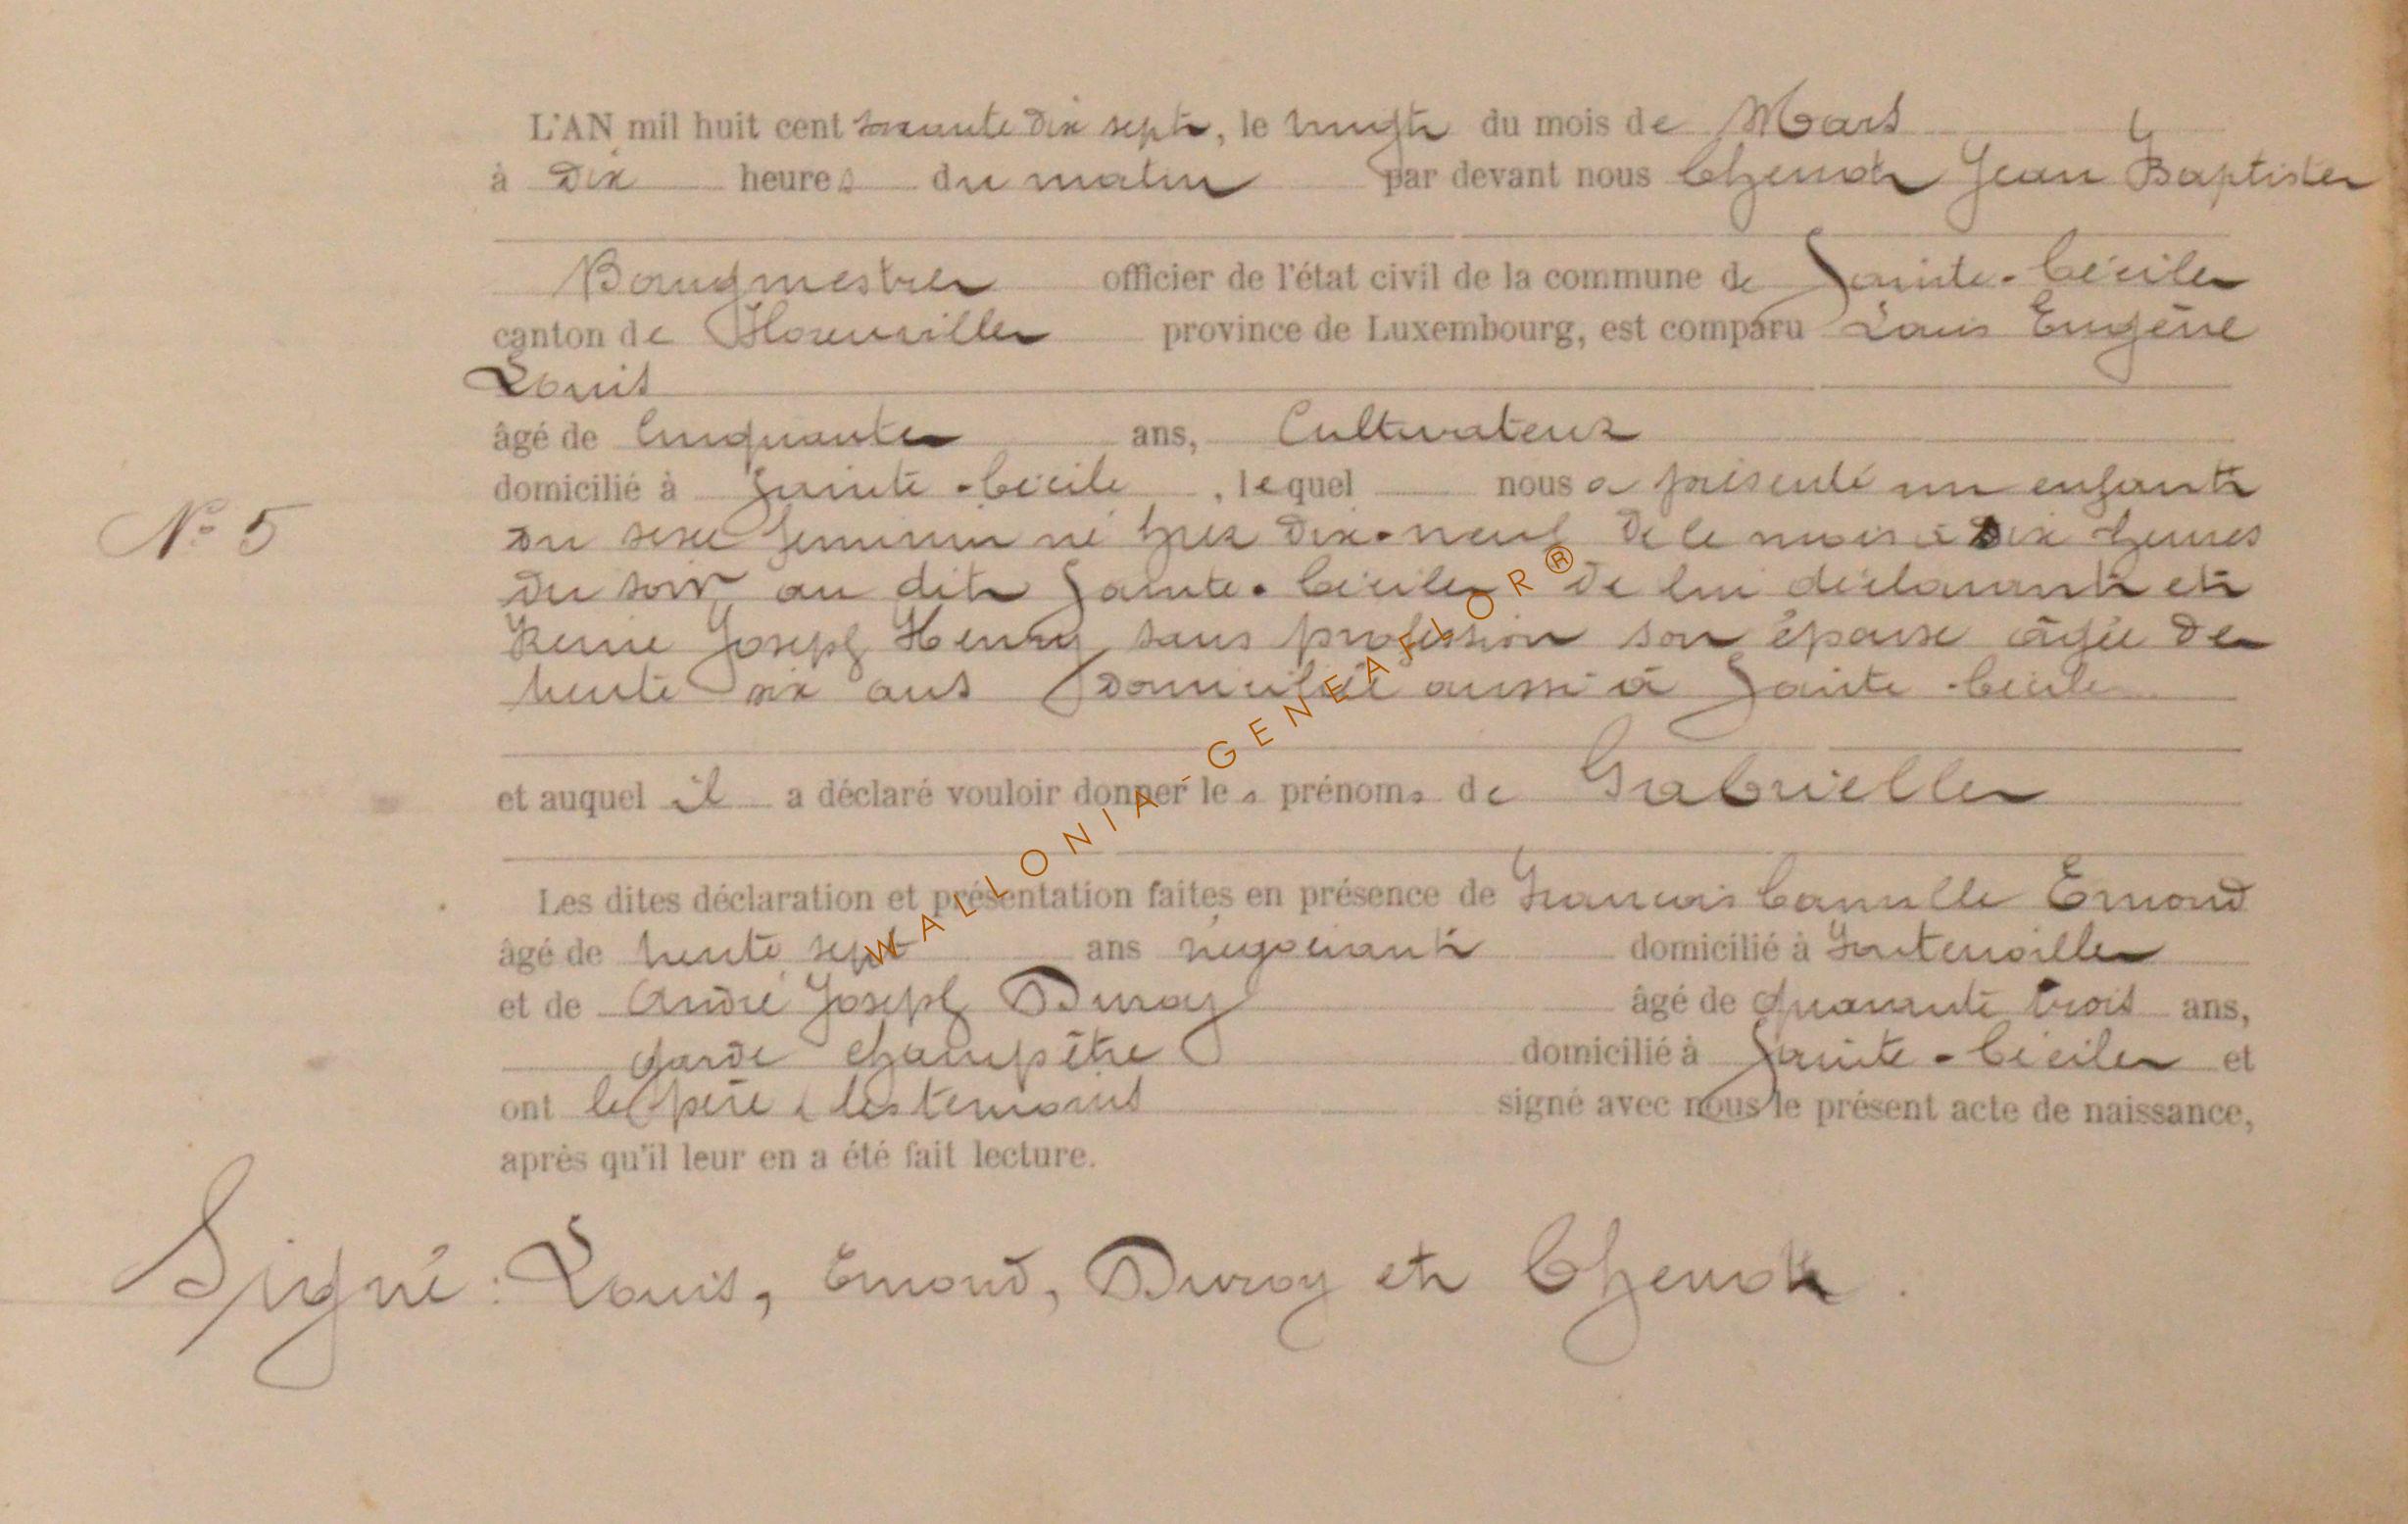 L'AN mil huit cent soixante dix sept, le vingt du mois de Mars
à dix heures du matin par devant nous Chenot Jean Baptiste
Bourgmestre officier de l'état civil de la commune de Sainte-Cécile
canton de Florenville province de Luxembourg, est comparu Louis Eugène
Louis
âgé de Cinquante ans, Cultivateur
domicilié à Sainte-Cécile, lequel nous a présenté un enfant
N° 5
du sexe feminin né hier dix-neuf de ce mois à dix heures
du soir au dit Sainte-Cécile de lui déclarant et
Joseph Henry sans profession son épouse âgée de
trente six ans domiciliée aussi à Sainte-Cécile
et auquel il a déclaré vouloir donner les prénoms de Gabrielle
Les dites déclaration et présentation faites en présence de François Camille Emond
âgé de trente sept ans négociant domicilié à Fontenoille
et de André Joseph Duroy âgé de quarante trois ans,
garde champêtre domicilié à Sainte-Cécile et
ont le père & les temoins signé avec nous le présent acte de naissance,
après qu'il leur en a été fait lecture.
Signé : Louis, Emond, Duroy et Chenot.
WALLONIA-GENEAFLOR®